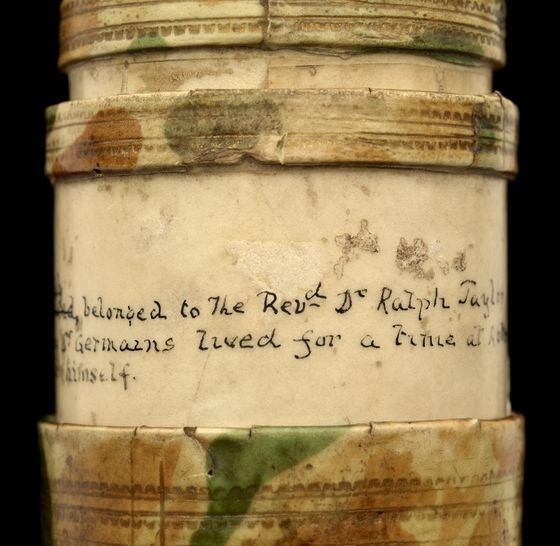 belonged to the Revd Dr Ralph Taylor
St Germains lived for a time at
himself.